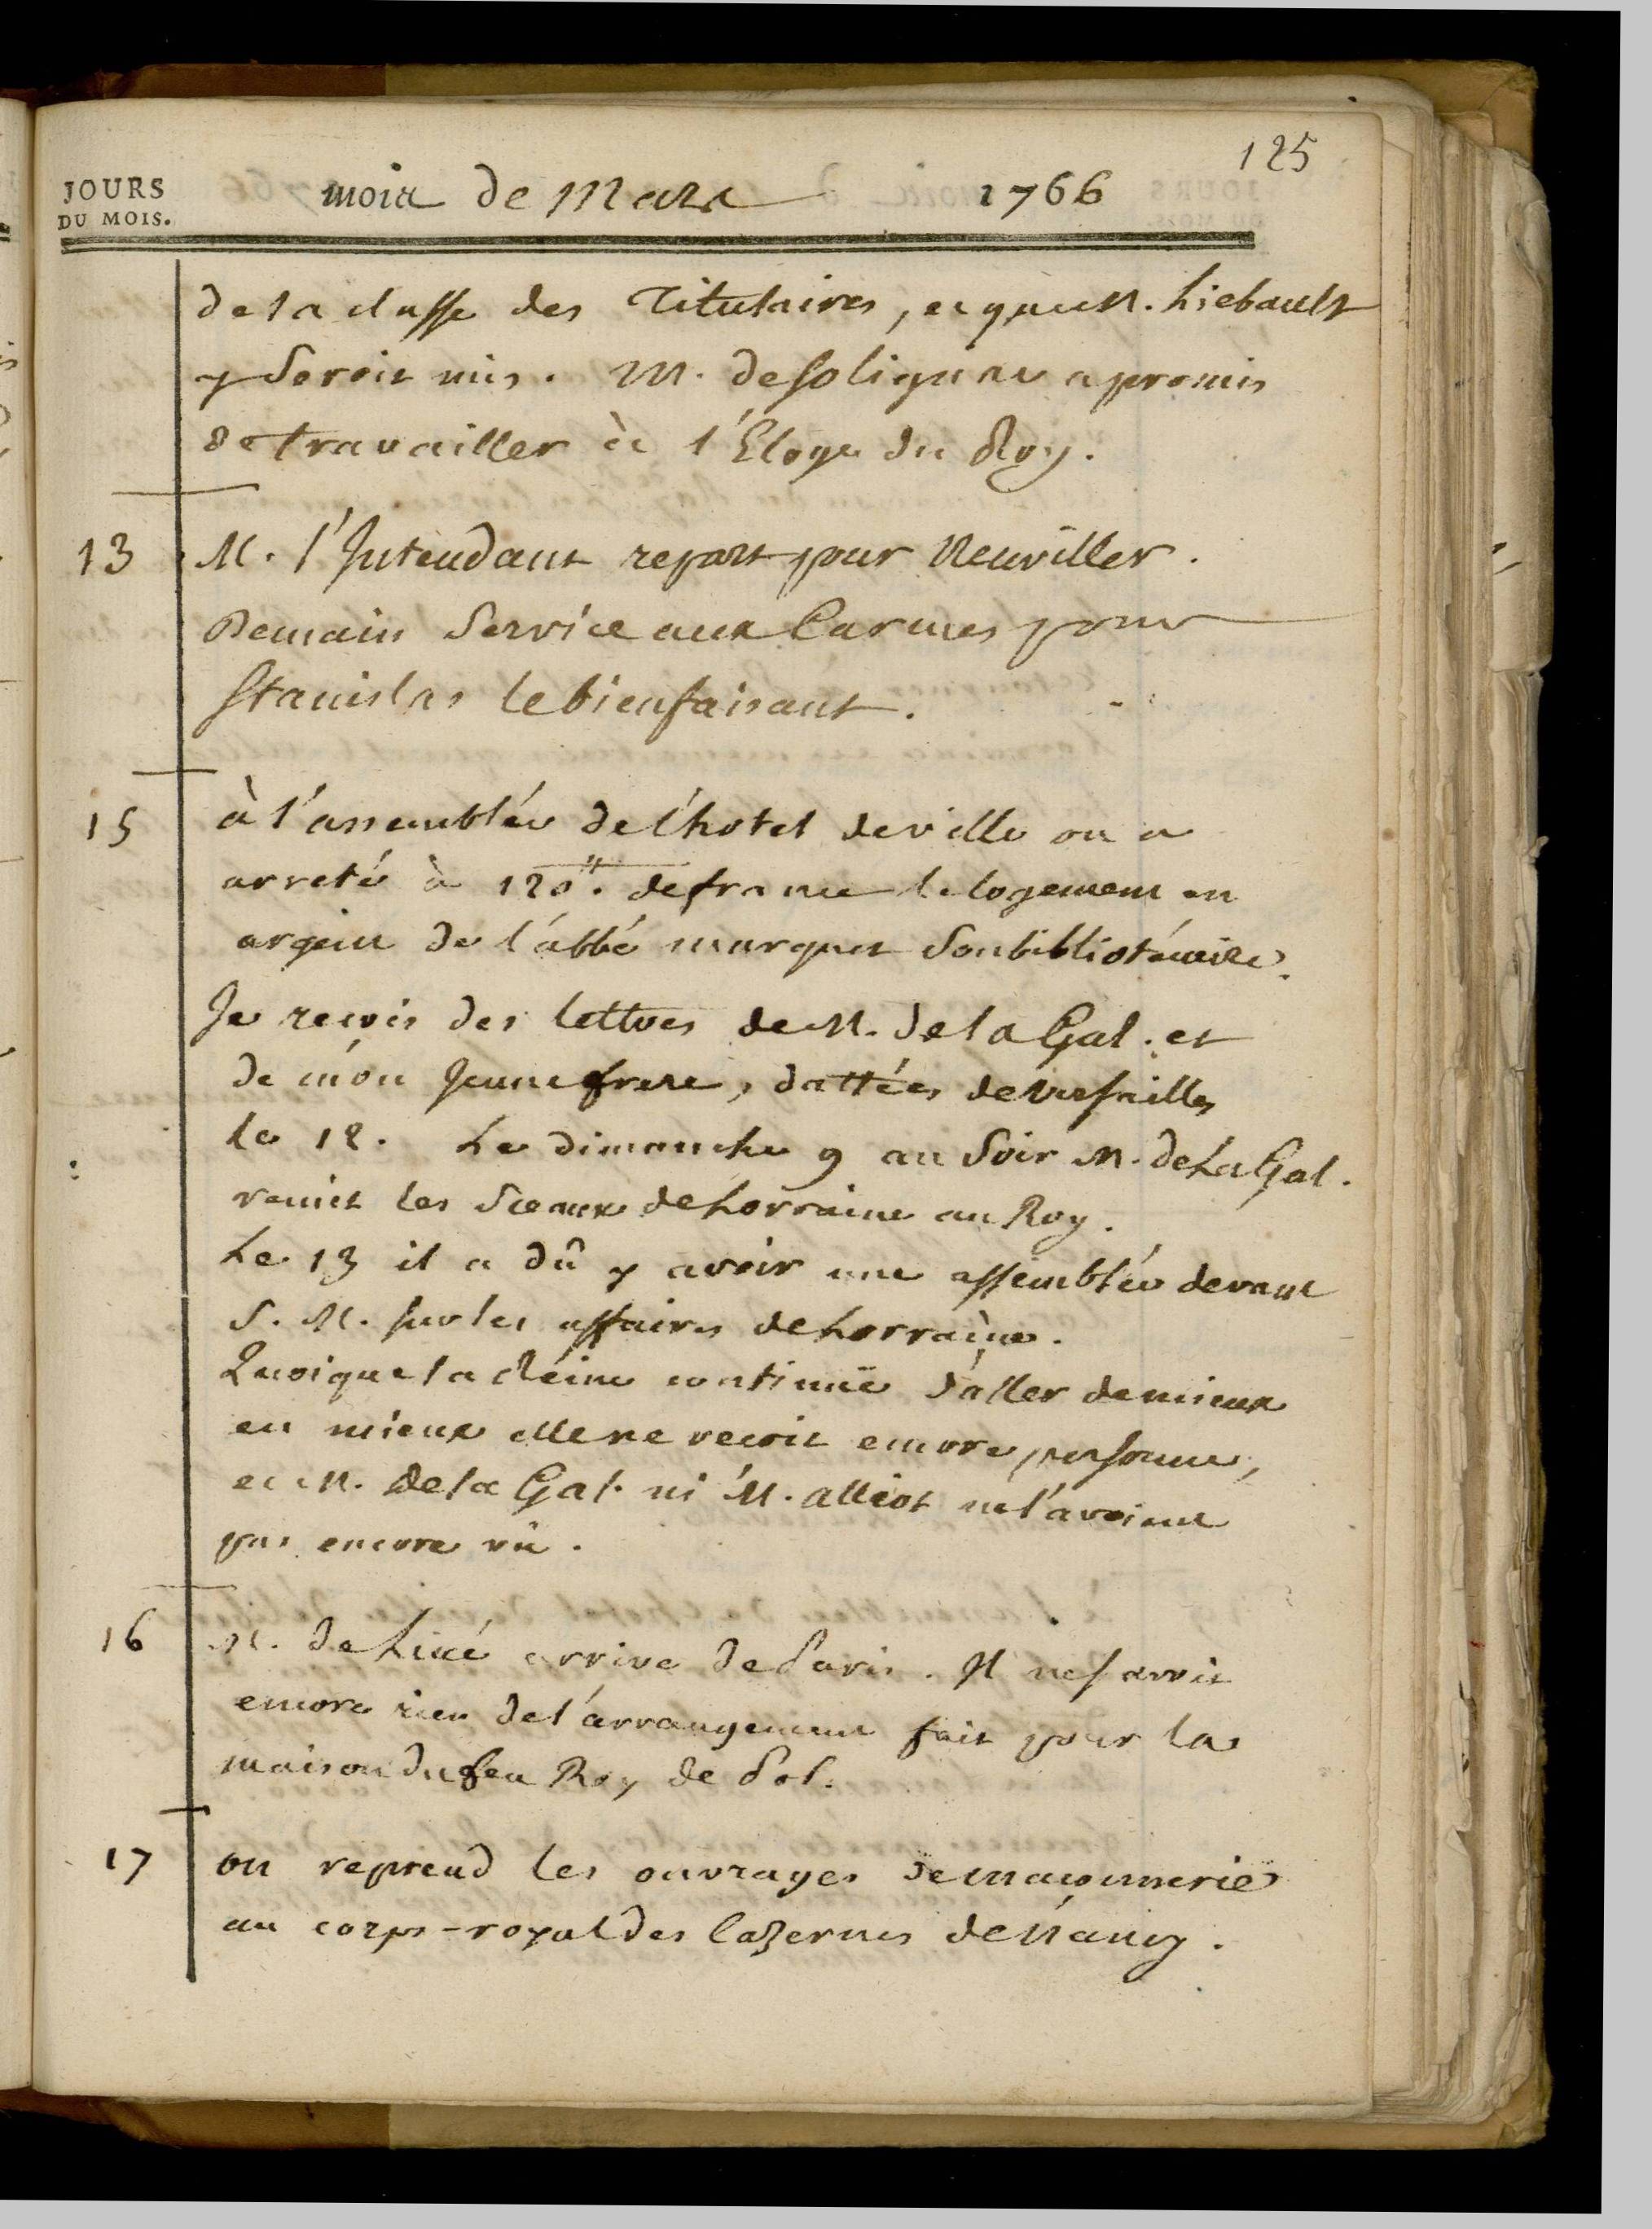 125
JOURS
DU MOIS.
mois de Mars 1766
de la classe des Titulaires, et que M. Liebault
y seroit mis. M. de Solignac a promis
de travailler à l'Eloge du Roy.
13 M. l'Intendant repart pour Neuviller.
Demain Service aux Carmes pour
Stanislas le bienfaisant.
15 à l'assemblée de l'hotel de ville on a
arreté à 120tt. de france le logement en
argent de l'abbé marquet son bibliotécaire.
Je recois des lettres de M. de la Gal. et
de mon Jeune frere, dattées de Versailles
le 12. Le dimanche 9 au Soir M. de La Gal.
remit les Sceaux de Lorraine au Roy.
Le 13 il a dû y avoir une assemblée devant
S. M. sur les affaires de Lorraine.
Quoique la Reine continuë d'aller de mieux
en mieux elle ne recoit encore personne,
et M. de la Gal. ni M. alliot ne l'avoient
pas encore vû.
16 M. de Lucé arrive de Paris. Il ne savoit
encore rien de l'arrangement fait pour la
maison du feu Roy de Pol.
17 on reprend les ouvrages de maconnerie
au corps-royal des Cazernes de Nancy.